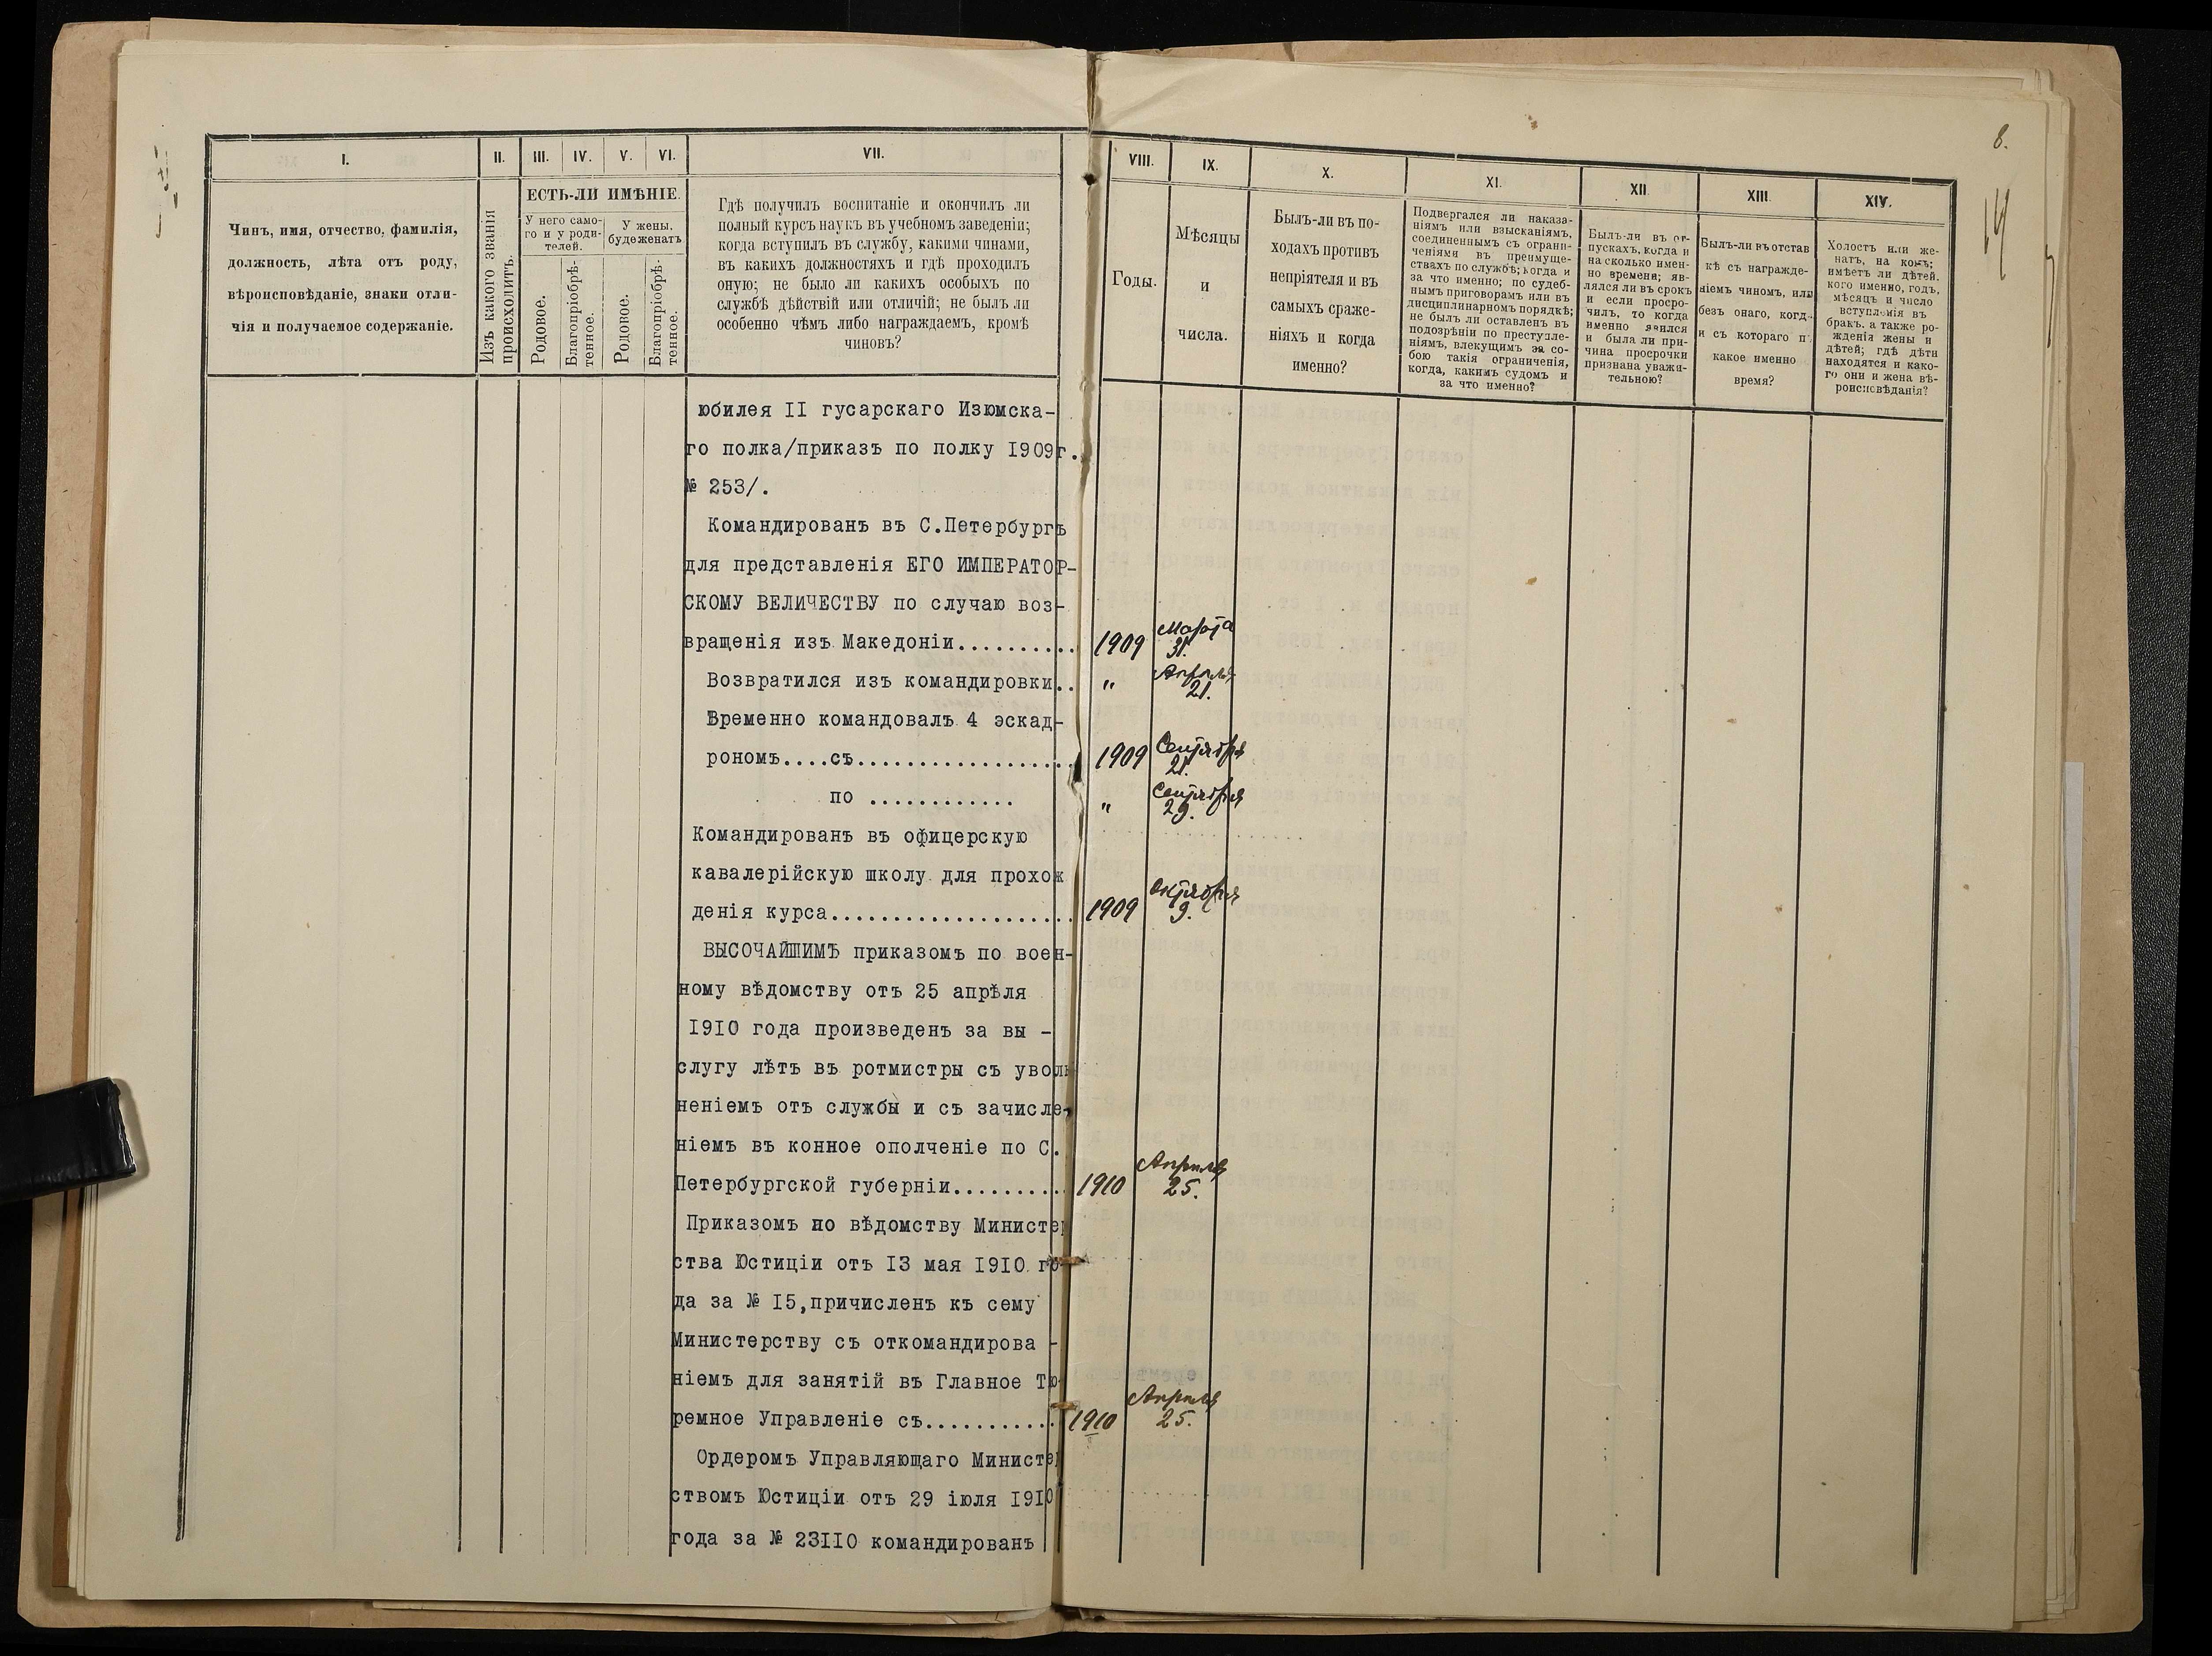 8.
14
I.
II.
III.
IV.
V.
VI.
VII.
VIII.
IX.
X.
XI.
XII
XIII
XIV.
Чинъ, имя, отчество, фамилія,
должность, лѣта отъ роду,
вѣроисповѣданіе, знаки отли-
чія и получаемое содержаніе.
Изъ какого званія
происходитъ.
ЕСТЬ-ЛИ ИМѢНІЕ.
У него само-
го и у роди-
телей.
У жены,
буде женатъ
Родовое.
Благопріобрѣ-
тенное.
Родовое.
Благопріобрѣ-
тенное.
Гдѣ получилъ воспитаніе и окончилъ ли
полный курсъ наукъ въ учебномъ заведеніи;
когда вступилъ въ службу, какими чинами,
въ какихъ должностяхъ и гдѣ проходилъ
оную; не было ли какихъ особыхъ по
службѣ дѣйствій или отличій; не былъ ли
особенно чѣмъ либо награждаемъ, кромѣ
чиновъ?
Годы.
Мѣсяцы
и
числа.
Былъ-ли въ по-
ходахъ противъ
непріятеля и въ
самыхъ сраже-
ніяхъ и когда
именно?
Подвергался ли наказа-
ніямъ или взысканіямъ,
соединеннымъ съ ограни-
ченіями въ преимуще-
ствахъ по службѣ; когда и
за что именно; по судеб-
нымъ приговорамъ или въ
дисциплинарномъ порядкѣ;
не былъ ли оставленъ въ
подозрѣніи по преступле-
ніямъ, влекущимъ за со-
бою такія ограниченія,
когда, какимъ судомъ и
за что именно?
Былъ-ли въ от-
пускахъ, когда и
на сколько имен-
но времени; яв-
лялся ли въ срокъ
и если просро-
чилъ, то когда
именно явился
и была ли при-
чина просрочки
признана уважи-
тельною?
Былъ-ли въ отстав
кѣ съ награжде-
ніемъ чиномъ, или
безъ онаго, когд
и съ котораго п
какое именно
время?
Холостъ или же-
натъ, на комъ;
имѣетъ ли дѣтей,
кого именно, годъ,
мѣсяцъ и число
вступленія въ
бракъ, а также ро-
жденія жены и
дѣтей; гдѣ дѣти
находятся и како-
го они и жена вѣ-
роисповѣданія?
юбилея II гусарскаго Изюмска-
го полка/приказъ по полку 1909г.
№ 253/.
Командированъ въ С.Петербургъ
для представленія ЕГО ИМПЕРАТОР-
СКОМУ ВЕЛИЧЕСТВУ по случаю воз-
вращенія изъ Македоніи.......... 1909 Марта 31.
Возвратился изъ командировки.. " Апрѣля 21.
Временно командовалъ 4 эскад-
рономъ....съ.................. 1909 Сентября 21.
по ............ " Сентября 29.
Командированъ въ офицерскую
кавалерійскую школу для прохож
денія курса.................... 1909 Октября 9.
ВЫСОЧАЙШИМЪ приказомъ по воен-
ному вѣдомству отъ 25 апрѣля
1910 года произведенъ за вы -
слугу лѣтъ въ ротмистры съ уволь
неніемъ отъ службы и съ зачисле-
ніемъ въ конное ополченіе по С.
Петербургской губерніи.......... 1910 Апрѣля 25.
Приказомъ по вѣдомству Министер
ства Юстиціи отъ 13 мая 1910 го-
да за № 15,причисленъ къ сему
Министерству съ откомандирова -
ніемъ для занятій въ Главное Тю-
ремное Управленіе съ........... 1910 Апрѣля 25.
Ордеромъ Управляющаго Министер
ствомъ Юстиціи отъ 29 іюля 1910
года за № 23110 командированъ